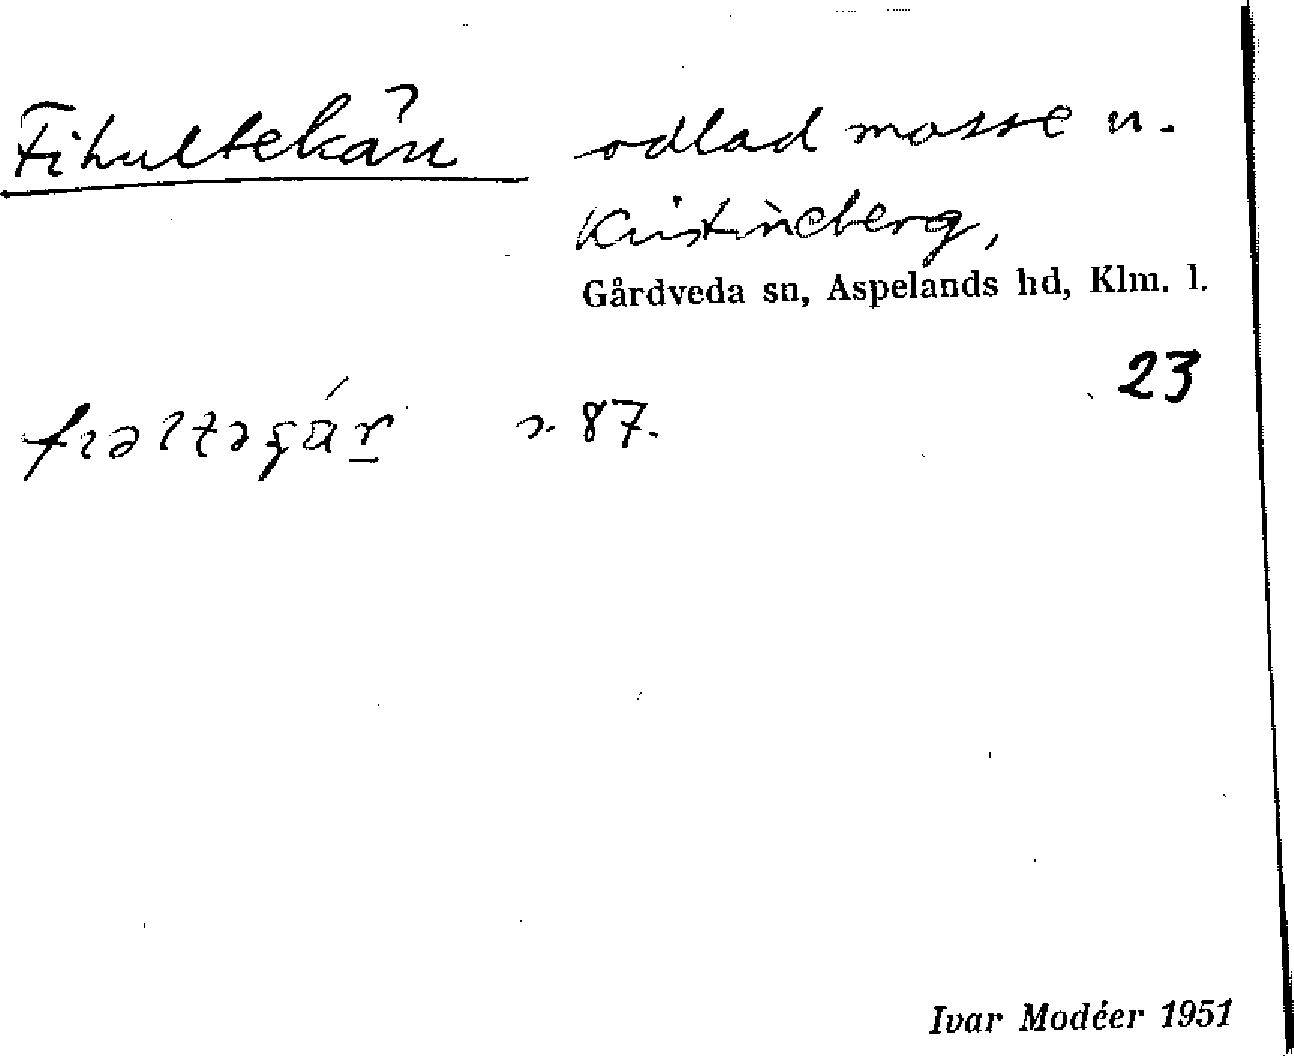 Fihultekärr odlad mosse u.
Kristineberg,
Gårdveda sn, Aspelands hd, Klm. l.
23
s. 87.
Ivar Modéer 1951